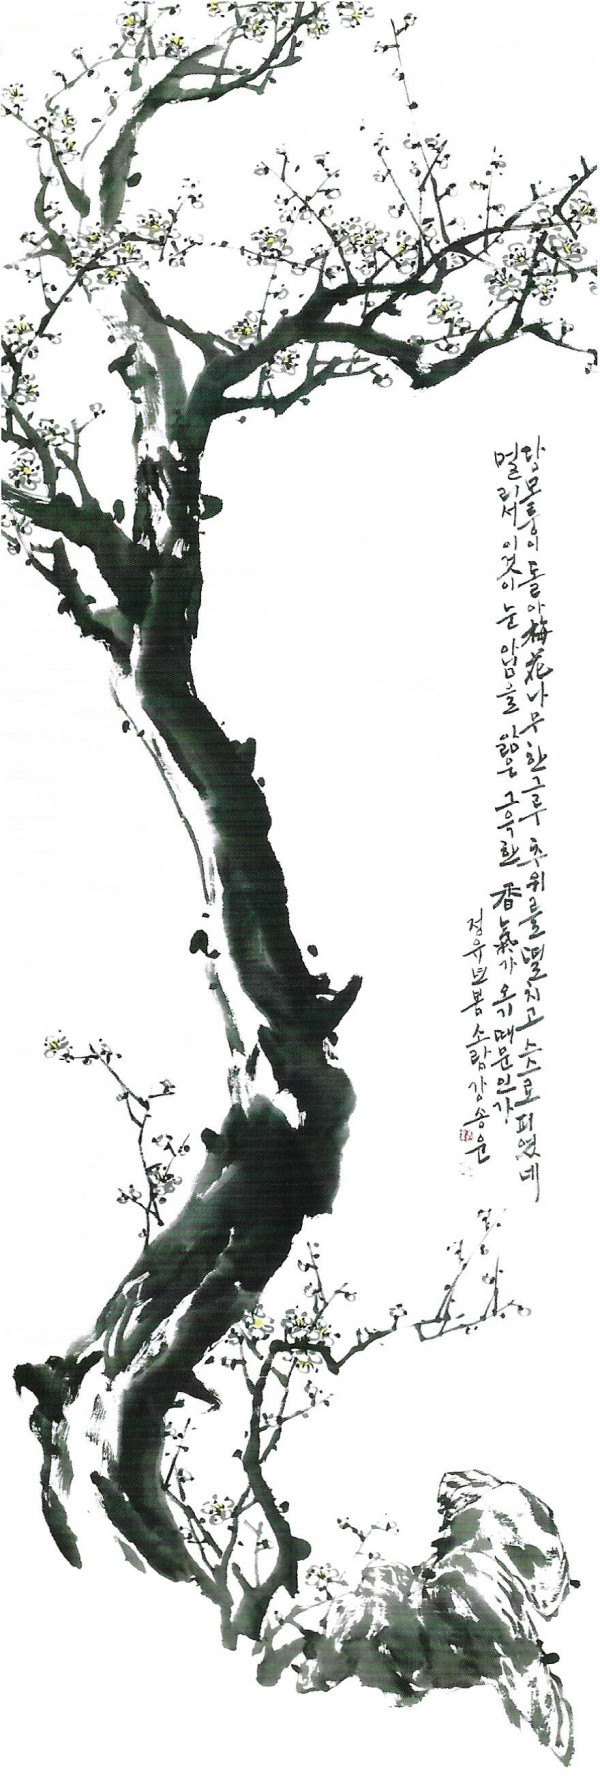 담모퉁이 돌아 梅花나무 한그루 추위를 떨치고 스스로 피었네
멀리서 이것이 눈 아님을 앎은 그윽한 香氣가 오기 때문인가
정유년 봄 소람 강송운